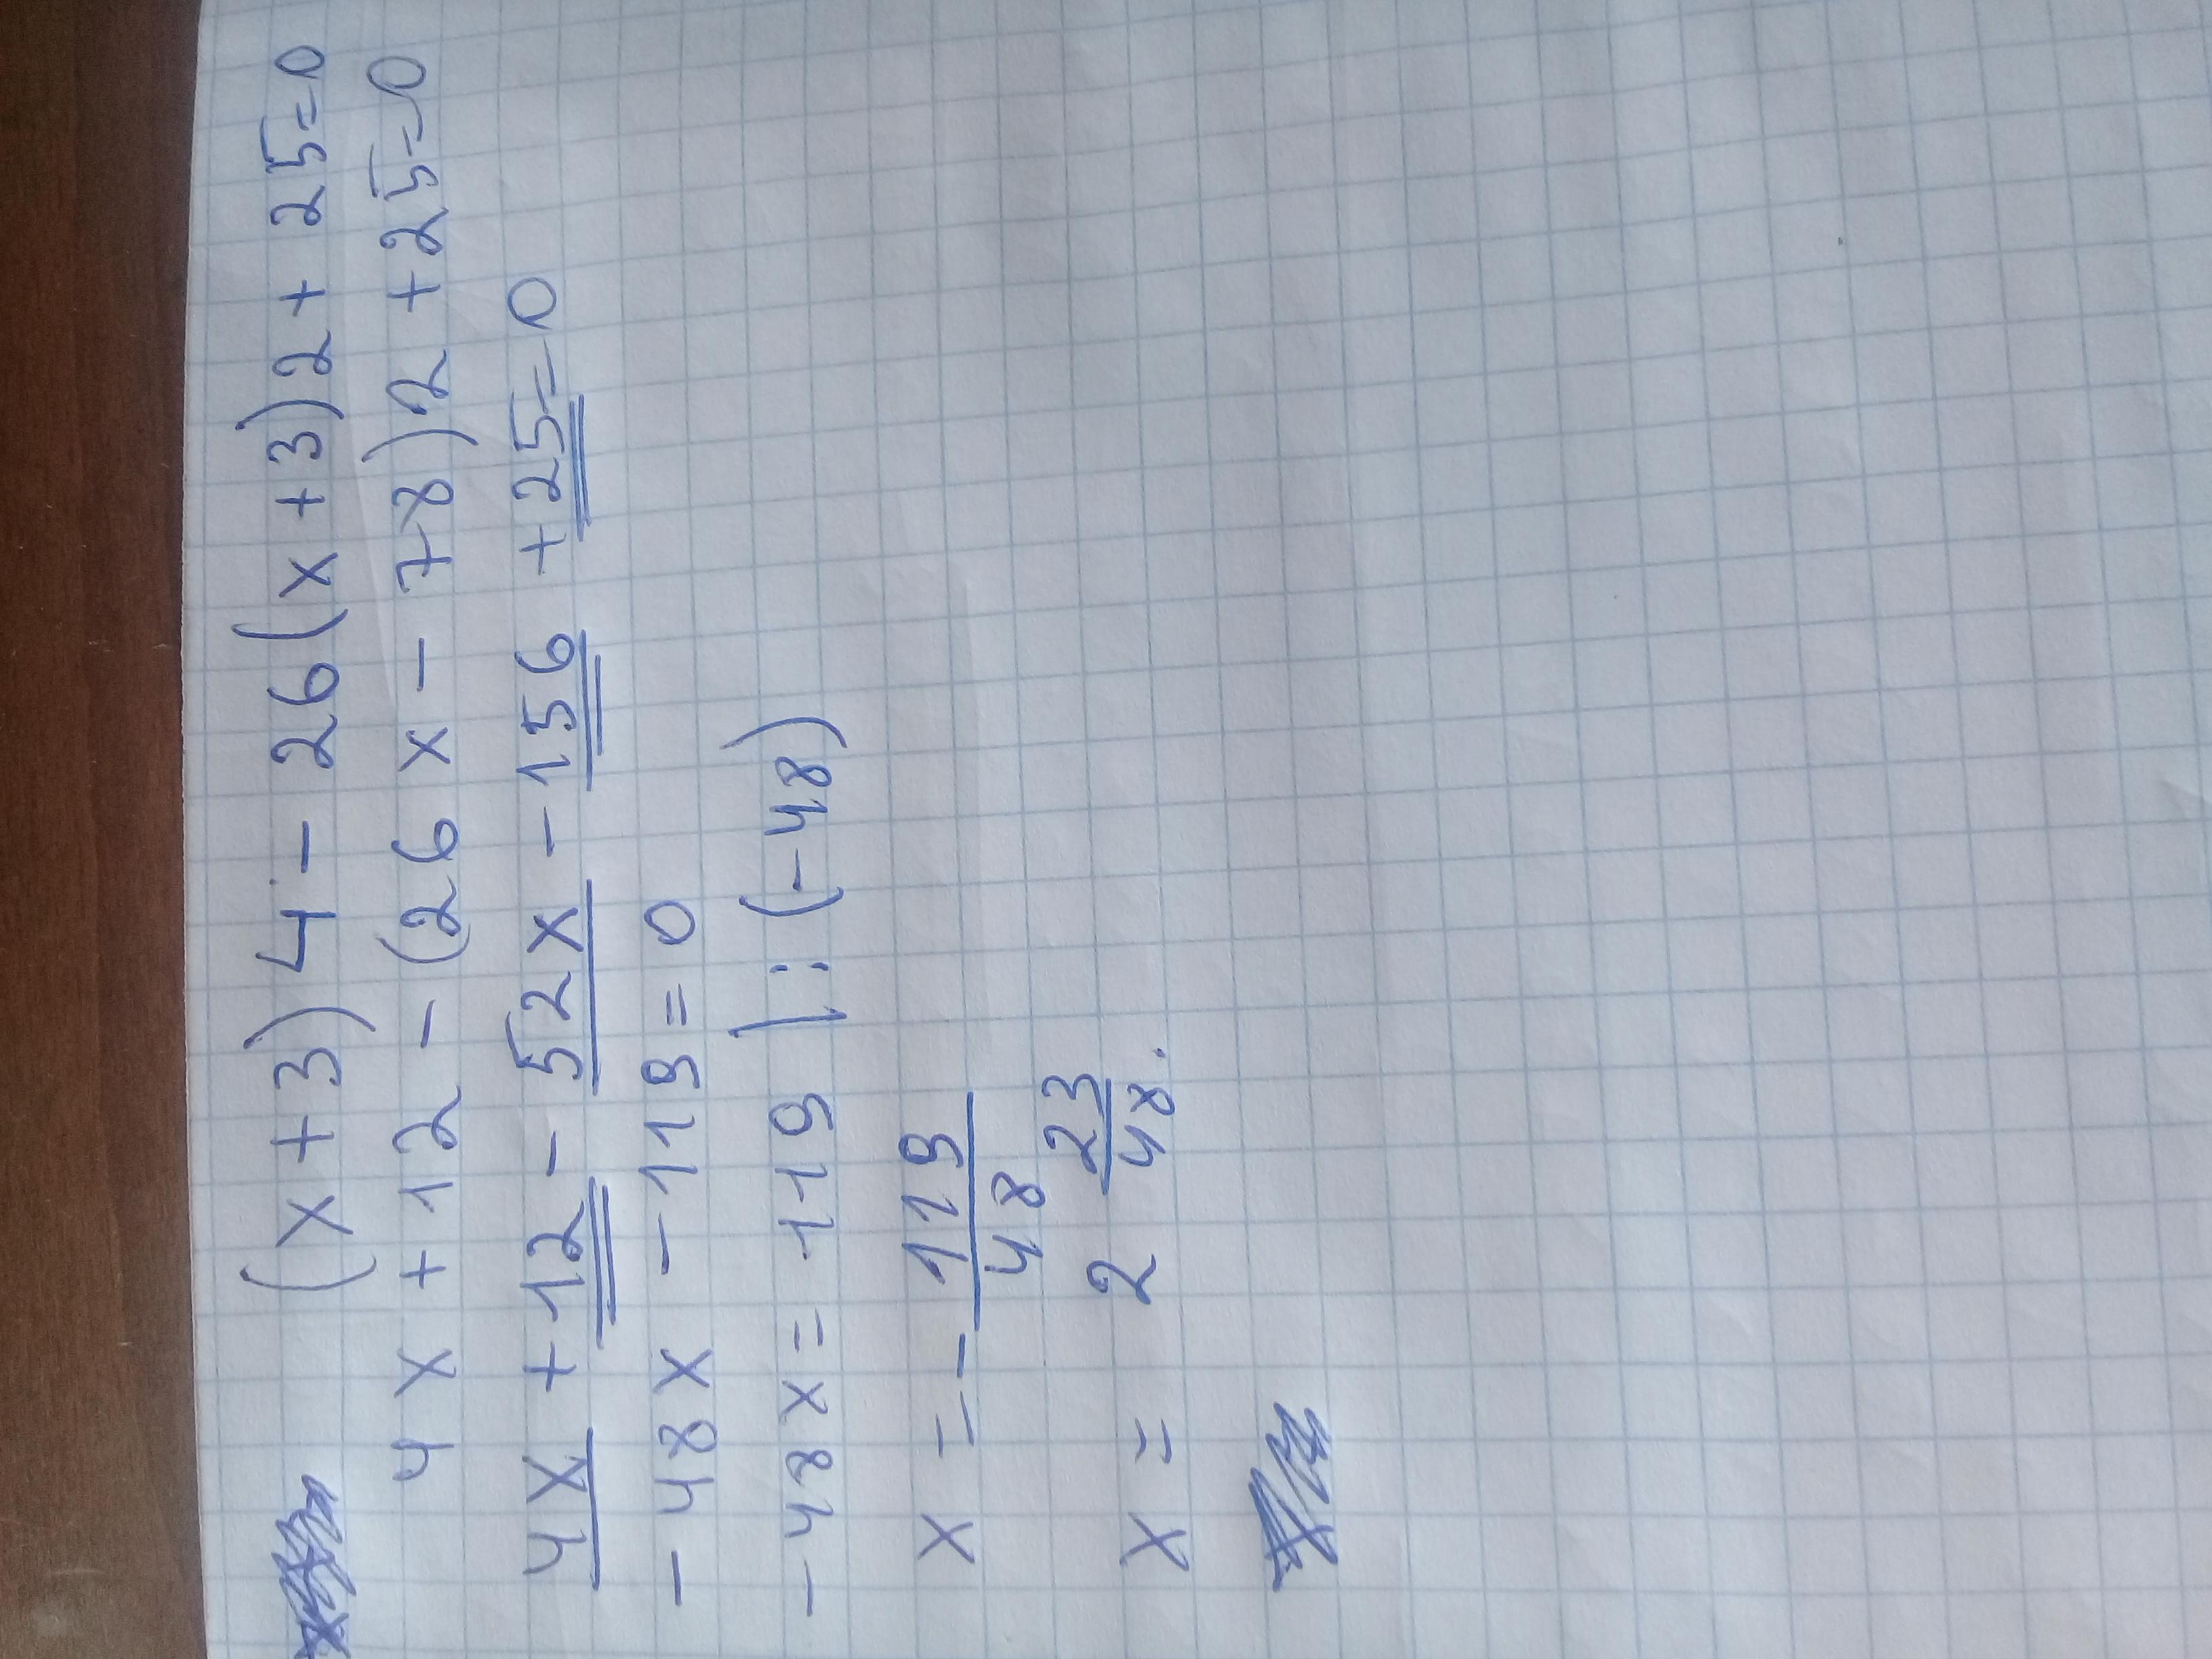 (x+3)4-26(x+3)2+25=0
4x+12-(26x-78)2+25=0
4x+12-52x-156+25=0
-48x-119=0
-48x=119 |:(-48)
x=-119/48
x= 2 23/48.